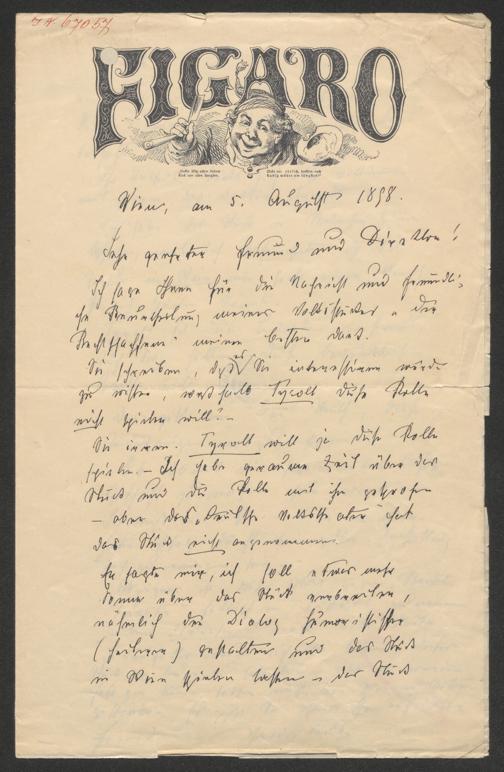 FIGARO
Wien, am 5. August 1898.
Sehr geehrter Freund und Direktor!
Ich sage Ihnen für die Nachricht und freundli-
che Beurtheilung meines Volksstückes „der
meinen besten Dank.
Sie schreiben, daß es Sie interessieren würde
zu wissen, weshalb Tyrolt diese Rolle
nicht spielen will? –
Sie irren. Tyrolt will ja diese Rolle
spielen. – Ich habe geraume Zeit über das
Stück und die Rolle mit ihm gesprochen
– aber das „Deutsche Volkstheater“ hat
das Stück nicht angenommen.
Er sagte mir, ich soll etwas mehr
über das Stück verbreiten,
nämlich den Dialog humoristischer
(heiterer) gestalten und das Stück
in Wien spielen lassen – das Stück